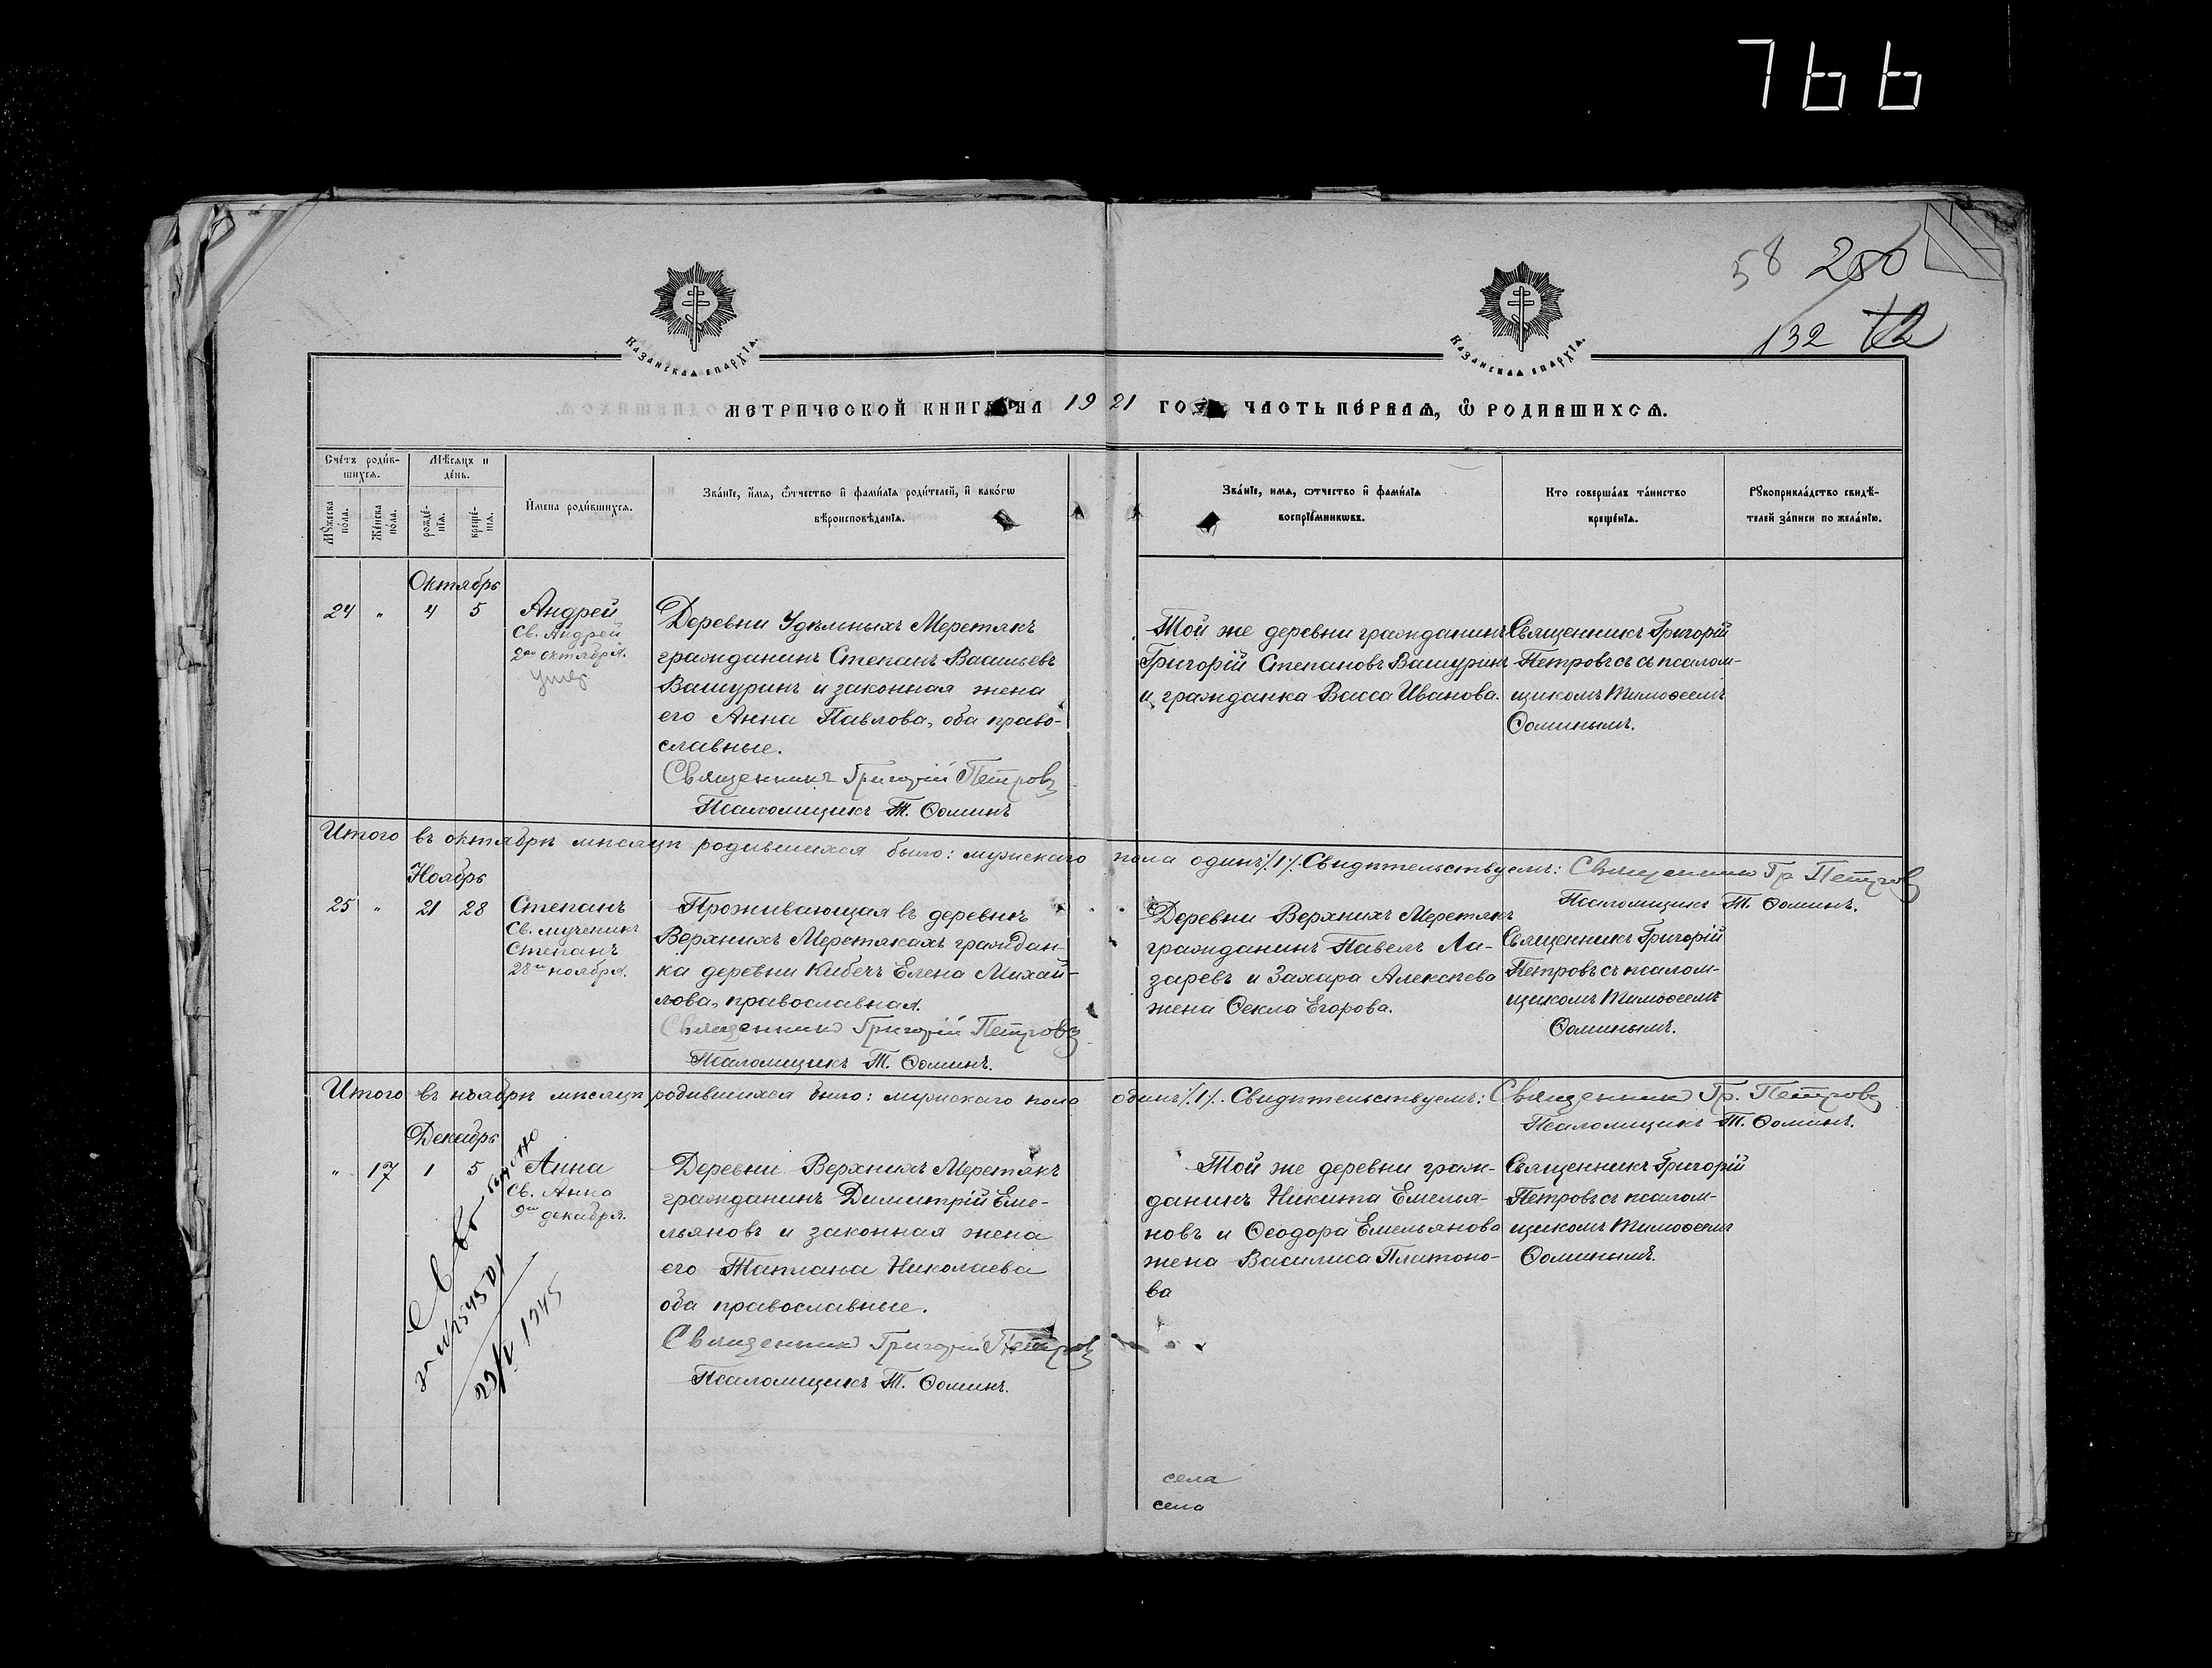 766
58 200
132 72
Казанская епархїѧ.
Казанская епархїѧ.
МЕТРИЧЕСКОЙ КНИГИ НА 1921 ГОДЪ ЧАСТЬ ПЕРВАѦ, Ѡ РОДИВШИХСѦ.
Счéтъ роди́в-
шихсѧ.
Мꙋ́жеска
по́ла.
Же́нска
по́ла.
Мѣ́сѧцъ и
де́нь.
рожде́-
нїѧ.
креще́-
нїѧ.
И҆мена роди́вшихсѧ.
Зва́нїе, и҆́мѧ, ѻ҆́тчество и҆ фами́лїѧ роди́телей, и҆ како́гѡ
вѣроисповѣ́данїѧ.
Зва́нїе, имѧ, ѻтчество и҆ фами́лїѧ
воспрїе́мникѡвъ.
Кто соверша́лъ та́инство
креще́нїѧ.
Рꙋкоприкла́дство свидѣ́-
телей за́писи по жела́нїю.
Октябрь
24 " 4 5
Андрей
Св. Андрей
2го октября.
умер
Деревни Удѣльныхъ Меретякъ
гражданинъ Степанъ Васильевъ
Вашуринъ и законная жена
его Анна Павлова, оба право-
славные.
Священникъ Григорій Петровъ
Псаломщикъ Т. Ѳоминъ
Той же деревни гражданинъ
Григорій Степановъ Вашуринъ
и гражданка Васса Иванова.
Священникъ Григорій
Петровъ съ съ псалом-
щикомъ Тимоѳеемъ
Ѳоминымъ.
Итого въ октябрѣ мѣсяцѣ родившихся было: мужскаго пола одинъ /1/. Свидѣтельствуемъ: Священникъ Гр. Петровъ
Псаломщикъ Т. Ѳоминъ.
Ноябрь
25 " 21 28
Степанъ
Св. мученикъ
Степанъ
28го ноября.
Проживающая въ деревнѣ
Верхнихъ Меретякахъ граждан-
ка деревни Кибечъ Елена Михай-
лова, православная.
Священникъ Григорій Петровъ
Псаломщикъ Т. Ѳоминъ.
Деревни Верхнихъ Меретякъ
гражданинъ Павелъ Ла-
заревъ и Захара Алексѣева
жена Ѳекла Егорова.
Священникъ Григорій
Петровъ съ псалом-
щикомъ Тимоѳеемъ
Ѳоминымъ.
Итого въ ноябрѣ мѣсяцѣ родившихся было: мужскаго пола одинъ /1/. Свидѣтельствуемъ: Священникъ Гр. Петровъ
Псаломщикъ Т. Ѳоминъ.
Декабрь
" 17 1 5
Анна
Св. Анна
9го декабря.
Деревни Верхнихъ Меретякъ
гражданинъ Димитрій Еме-
льяновъ и законная жена
его Татіана Николаева
оба православные.
Священникъ Григорій Петровъ
Псаломщикъ Т. Ѳоминъ.
Той же деревни граж-
данинъ Никита Емелья-
новъ и Ѳеодора Емельянова
жена Василиса Платоно-
ва
Священникъ Григорій
Петровъ съ псалом-
щикомъ Тимоѳеемъ
Ѳоминымъ.
1945
села
села